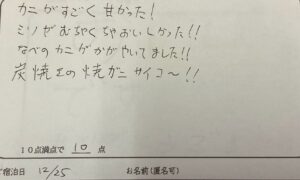 カニがすごく甘かった!
ミソがむちゃくちゃおいしかった!!
なべのカニがかがやいてました!!
炭焼きの焼ガニサイコ～!!
10点満点で 10 点
宿泊日 12/25 お名前(匿名可)